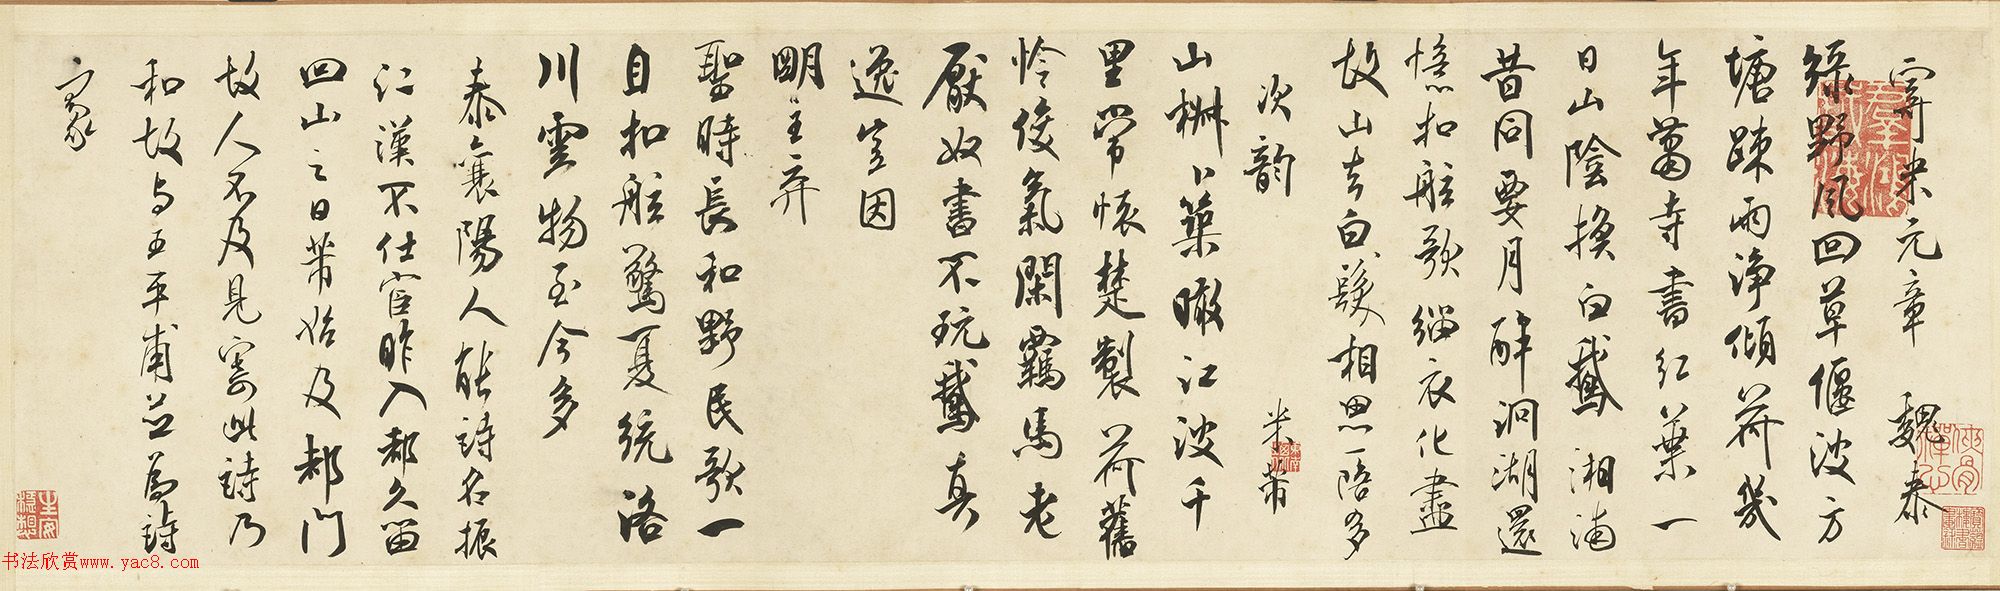 寄米元章　魏泰
綠野風回草偃波方
塘踈雨淨傾荷幾
年蕭寺書紅葉一
日山陰換白鵝湘浦
昔同要月醉洞湖還
憶扣舷歌緇衣化盡
故山去白髮相思一陪多
次韻　米芾
山椒卜築瞰江波千
里常懷楚製荷舊
怜俊氣閑羈馬老
厭奴書不玩鵝真
逸豈因
明主弃
聖時長和野民歌一
自扣舷驚夏統洛
川雲物至今多
泰襄陽人能詩名振
江漢不仕宦昨入都久留
回山之日芾始及都門
故人不及見寄此詩乃
和故与王平甫並為詩
豪
书法欣赏www.yac8.com